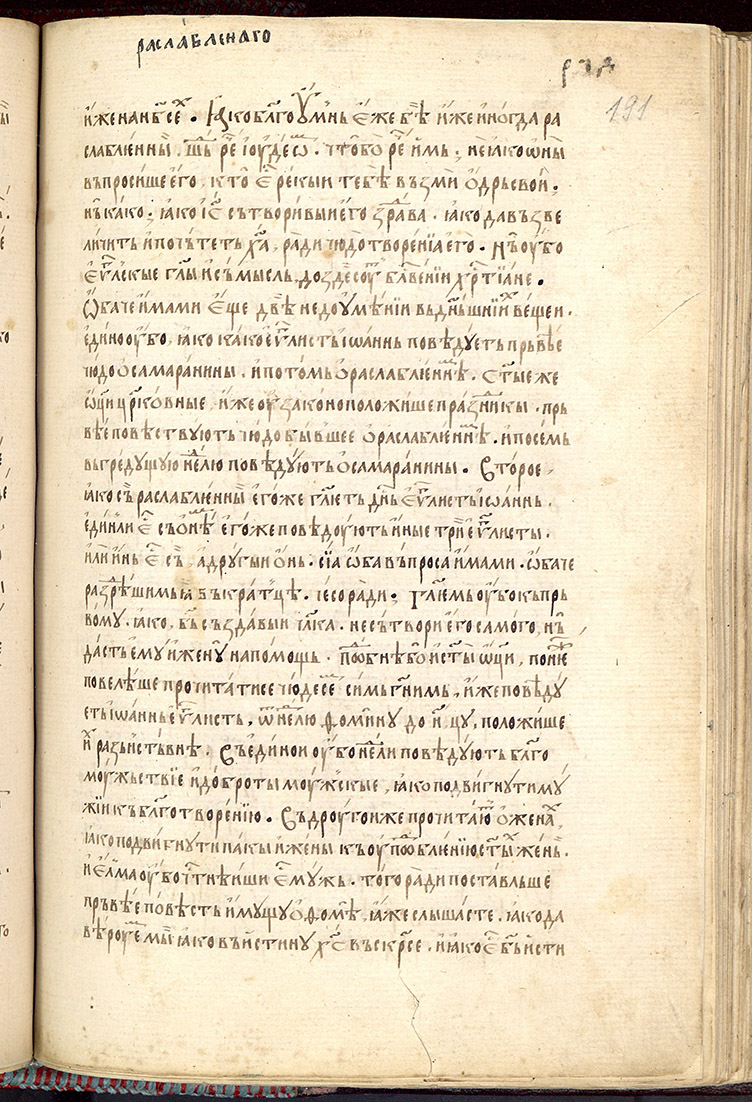 раслабленаго
рчд
191
иже на нб҃се. Ꙗко благоꙋмнѣ еже бѣ иже иногда ра
слабленныи. ре҇ іꙋдеѡ. что бо ре҇ имь; не ꙗко ѡни
въпросише его, кто е҇ рекыи тебѣ възми ѻдрь свои;
нъ како; ꙗко іс҃ сътворивыи его здрава. ꙗко да възве
личить и почътеть х҃а, ради чюдотворенїа его. Нъ ꙋбо
еѵ҃лскые гл҃ы и съмысль, до здѣ ꙋ блг҃веніи хр҇тїане.
Ѻбаче имами еще двѣ недоꙋмѣнїи вь дн҃шнїи вещеи.
едино ꙋбо, ꙗко како еѵ҃листь іѡаннь повѣдꙋеть прьвѣе
чюдо ѻ самаранины. и потомь ѻ раслабленнѣ. Ст҃ые же
ѡц҃и цр҃ковные, иже ꙋзаконоположише праздникы. прь
вѣе повѣствꙋють чюдо бывшее ѻ раслабленнѣ. и по семь
вьгредꙋщꙋю нед҃лю повѣдꙋють ѻ самаранины. Второе,
ꙗко съ раслабленныи егоже гл҃еть дн҃ь еѵ҃листь іѡаннь.
един ли е҇ съ ѻнѣ егоже повѣдꙋють ины трие еѵ҃листы.
или инь е҇ съ, а дрꙋгыи ѻнь. сїа ѻба въпроса имами. ѻбаче
разрѣшимь ꙗ въкратцѣ. чесо ради; Гл҃емь ꙋбо къ прь
вомꙋ. ꙗко, бг҃ъ създавыи чл҃ка. не сътвори его самого, нъ
дасть емꙋ и женꙋ на помощь. подобнѣ бо и ст҃ы ѡц҃и, понеже
повелѣше прочитати се чюдесе симь гнимь, иже повѣдꙋ
еть іѡаннь еѵ҃листь, ѿ нед҃лю фоминꙋ до н҃цꙋ, положише
и разьнствьнѣ. Въ единои ꙋбо нед҃ли повѣдꙋють благо
мꙋжьствїе и доброты мꙋжскые, ꙗко подвигнꙋти мꙋ
жїи къ благотворенїю. Въ дрꙋгои же прочитаю҇ ѻ жена,
ꙗко подвигнꙋти пакы и жены къ ꙋподобленїю ст҃ы женъ.
и елма ꙋбо чтнѣиши е҇ мꙋжь. того ради поставльше
прьвѣе повѣсть имꙋщꙋ ѻ фомѣ, ꙗже слышасте. ꙗко да
вѣрꙋе мы ꙗко въистинꙋ х҇с въскр҃се. и ꙗко е҇ бг҃ь исти